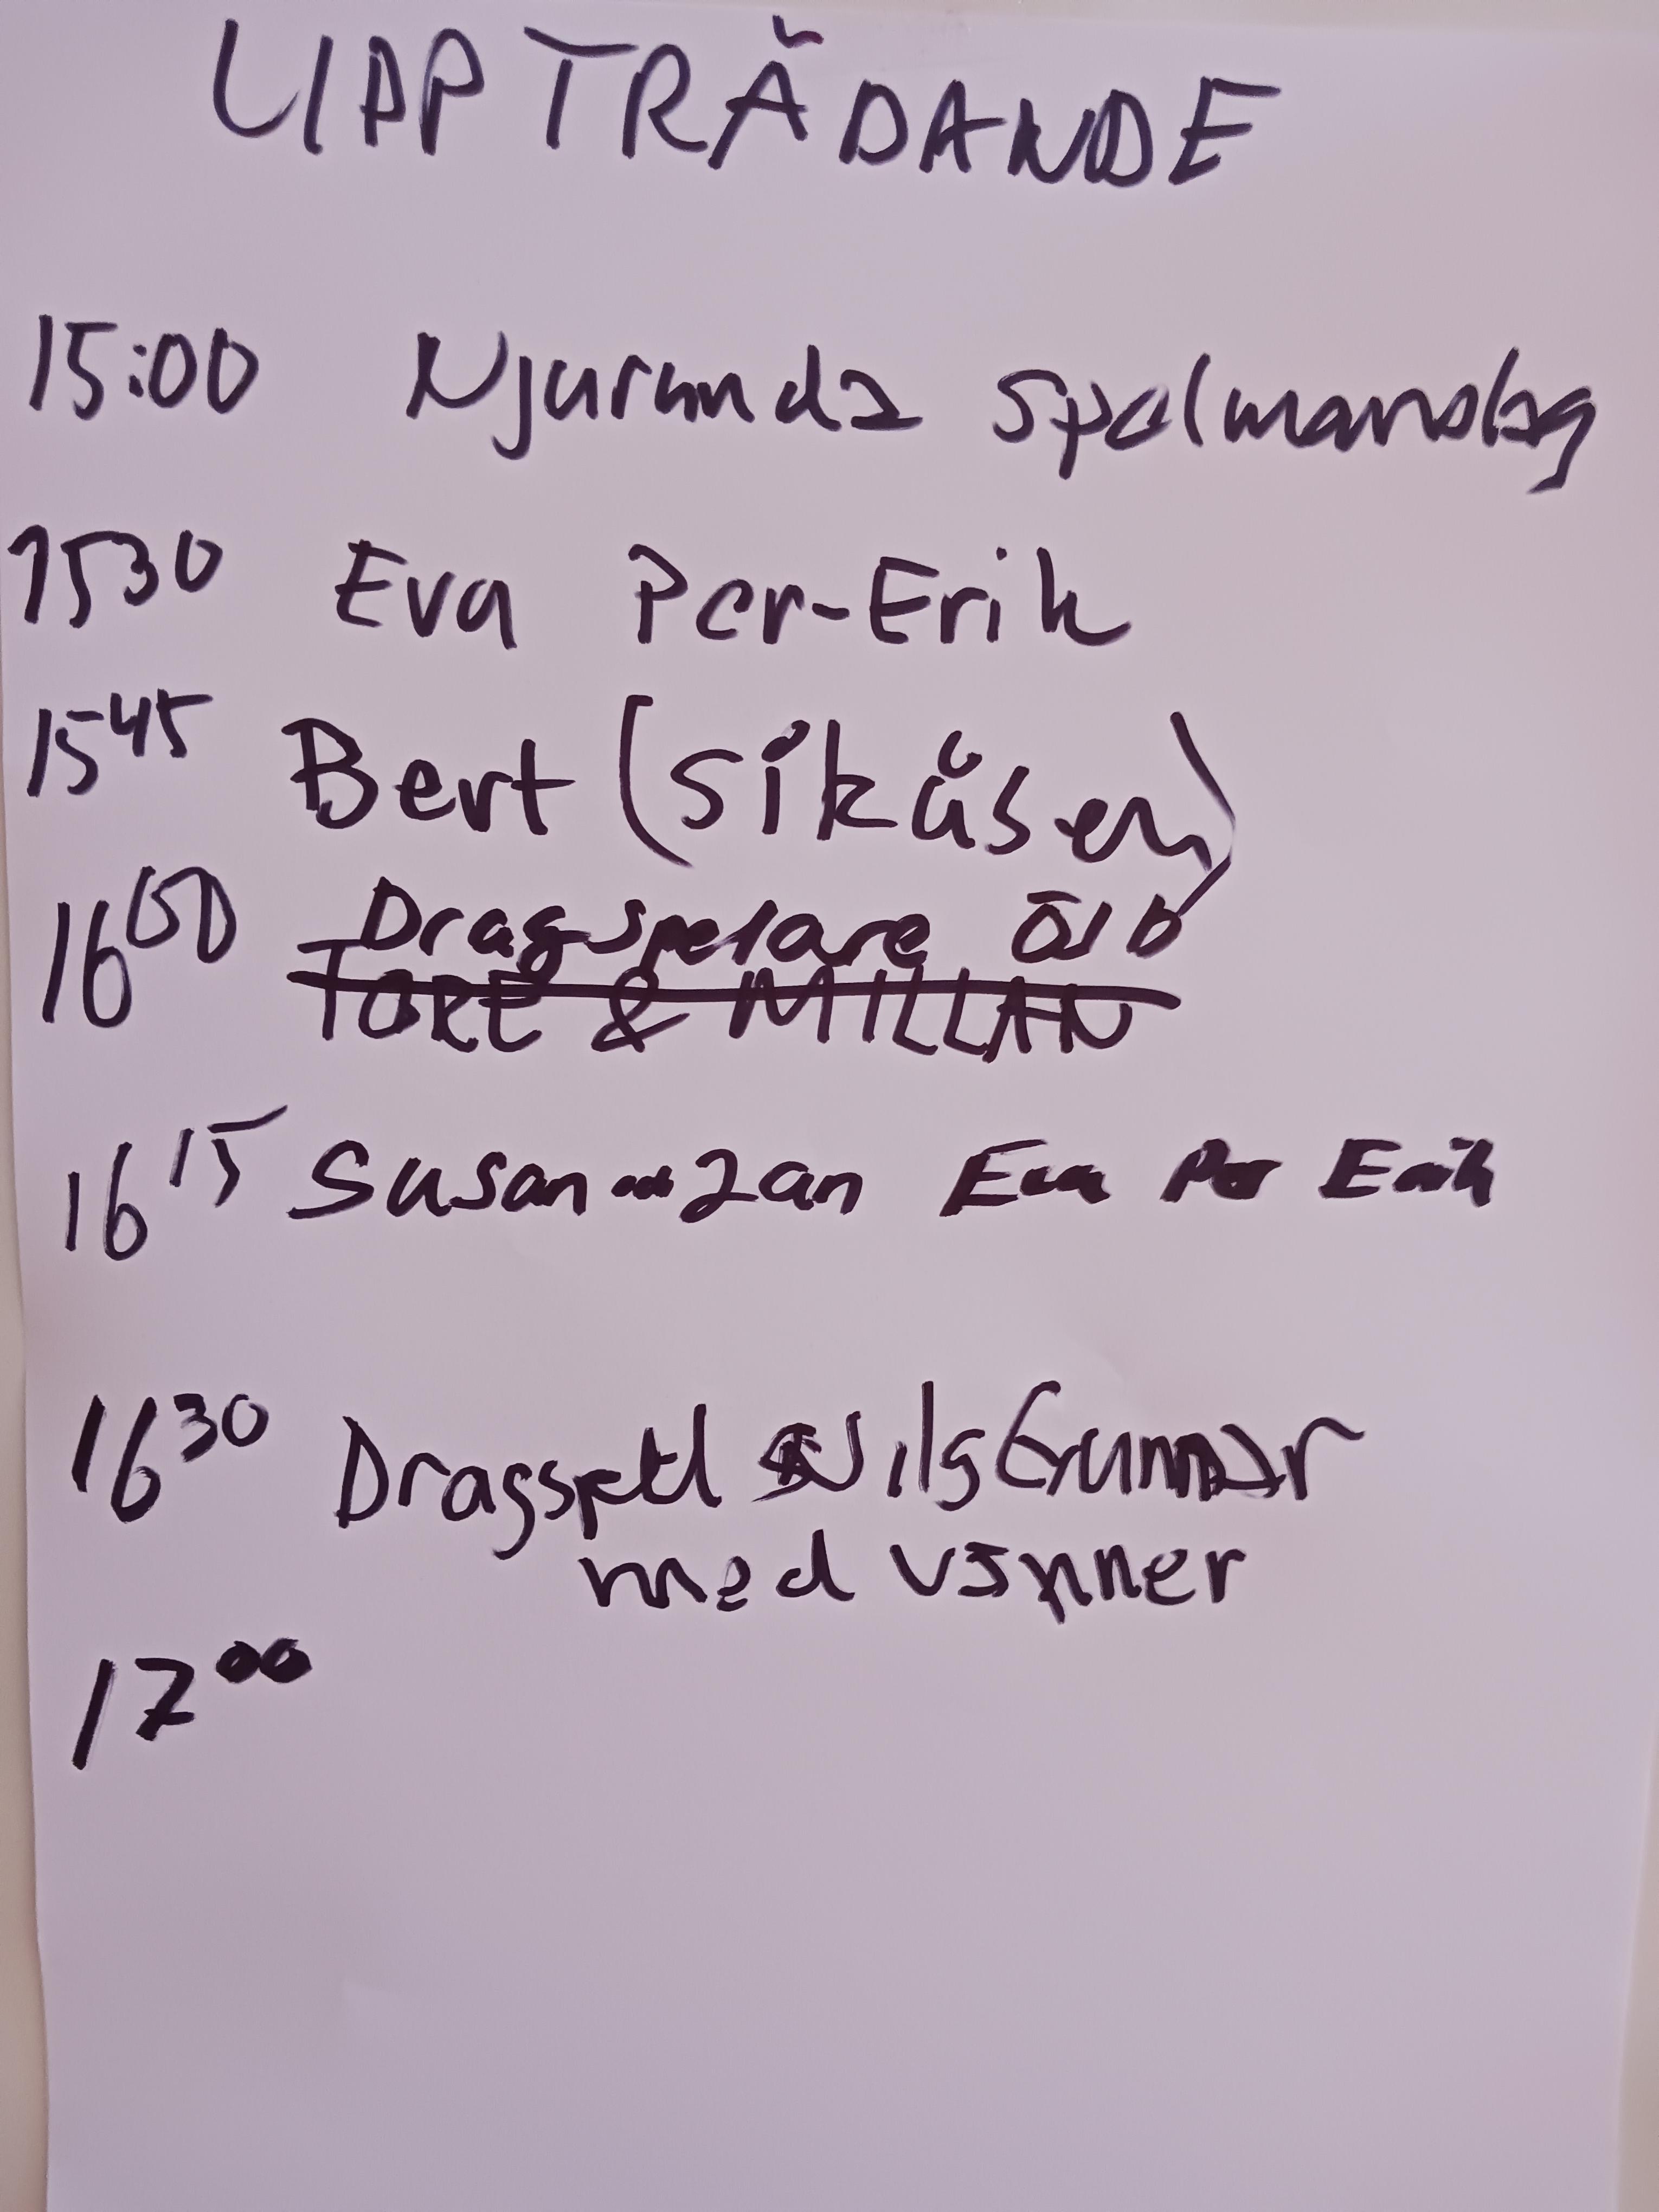 UPPTRÄDANDE
15:00 Njurunda Spelmanslag
15 30 Eva Per-Erik
15 45 Bert (Sikåsen)
16 00 Dragspelare Ö1b
TORE & MILLAN
16 15 Susan Eva Per Erik
16 30 Dragspel Nils Gunnar
med vänner
17 00